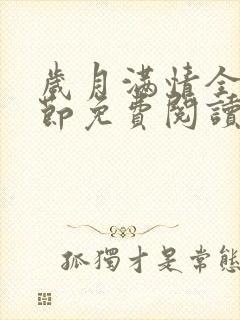 歲月滿情全
節免費閱讀
孤獨才是常態